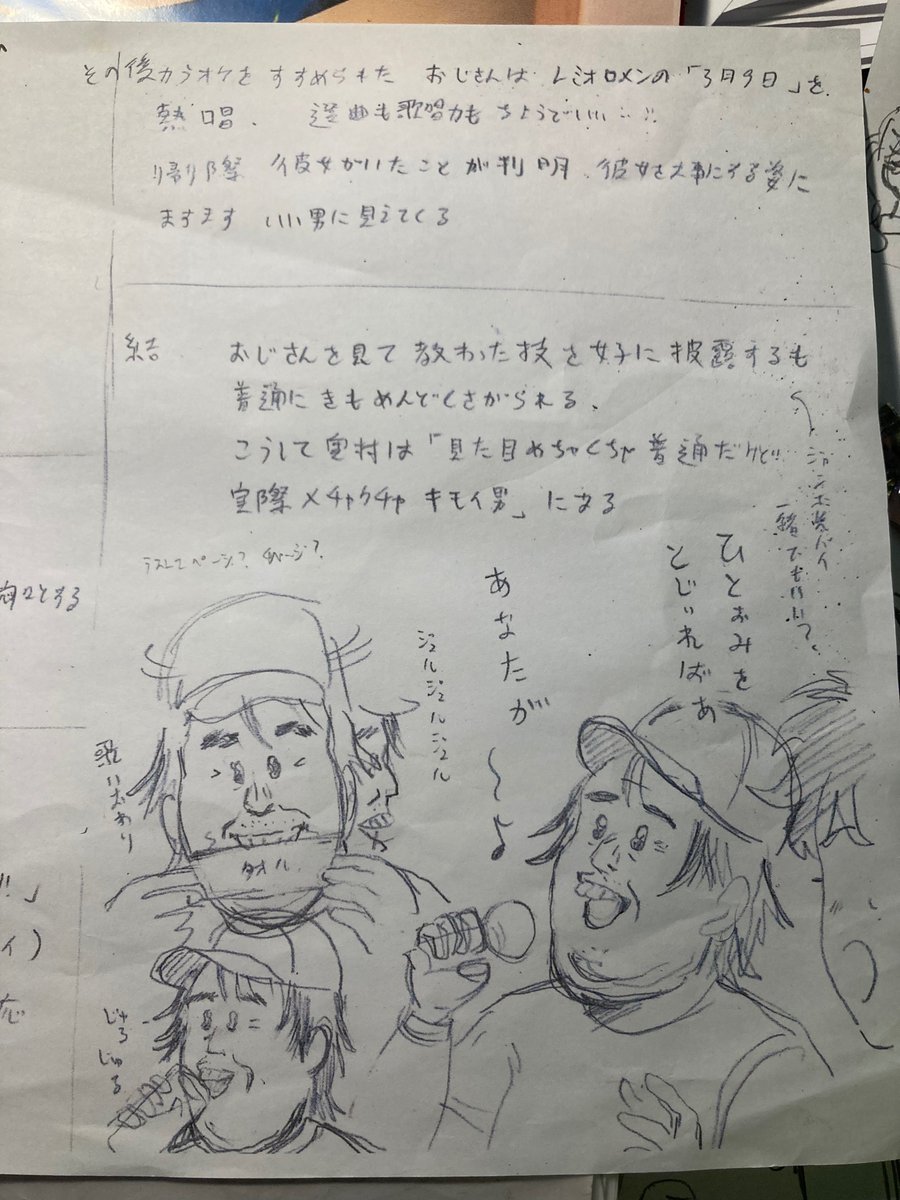 その後カラオケをすすめられた おじさんは レミオロメンの「3月9日」を
熱唱、 選曲も歌唱力もちょうどいい…!!
帰り際 彼女がいたことが判明、彼女を大事にする姿に
ますます いい男に見えてくる
結 おじさんを見て教わった技を女子に披露するも
普通にきもめんどくさがられる、
こうして奥村は「見た目めちゃくちゃ普通だけど
実際メチャクチャキモイ男」になる
一緒でもいい?
ひとおみを
とじいればあ
あなたが
〜♪
ジュルジュルジュル
歌いおわり
タオル
じゅる
じゅる
向口とする
!!」
イ)
応